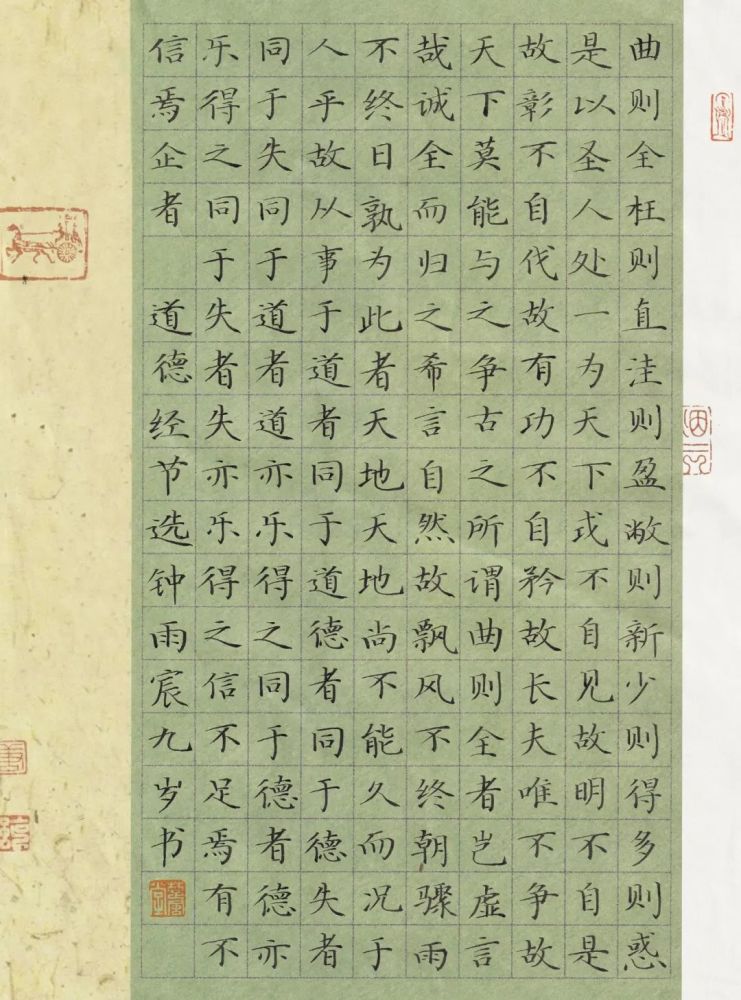 曲则全枉则直洼则盈敝则新少则得多则惑
是以圣人处一为天下式不自见故明不自是
故彰不自伐故有功不自矜故长夫唯不争故
天下莫能与之争古之所谓曲则全者岂虚言
哉诚全而归之希言自然故飘风不终朝骤雨
不终日孰为此者天地天地尚不能久而况于
人乎故从事于道者同于道德者同于德失者
同于失同于道者道亦乐得之同于德者德亦
乐得之同于失者失亦乐得之信不足焉有不
信焉企者 道德经节选钟雨宸九岁书